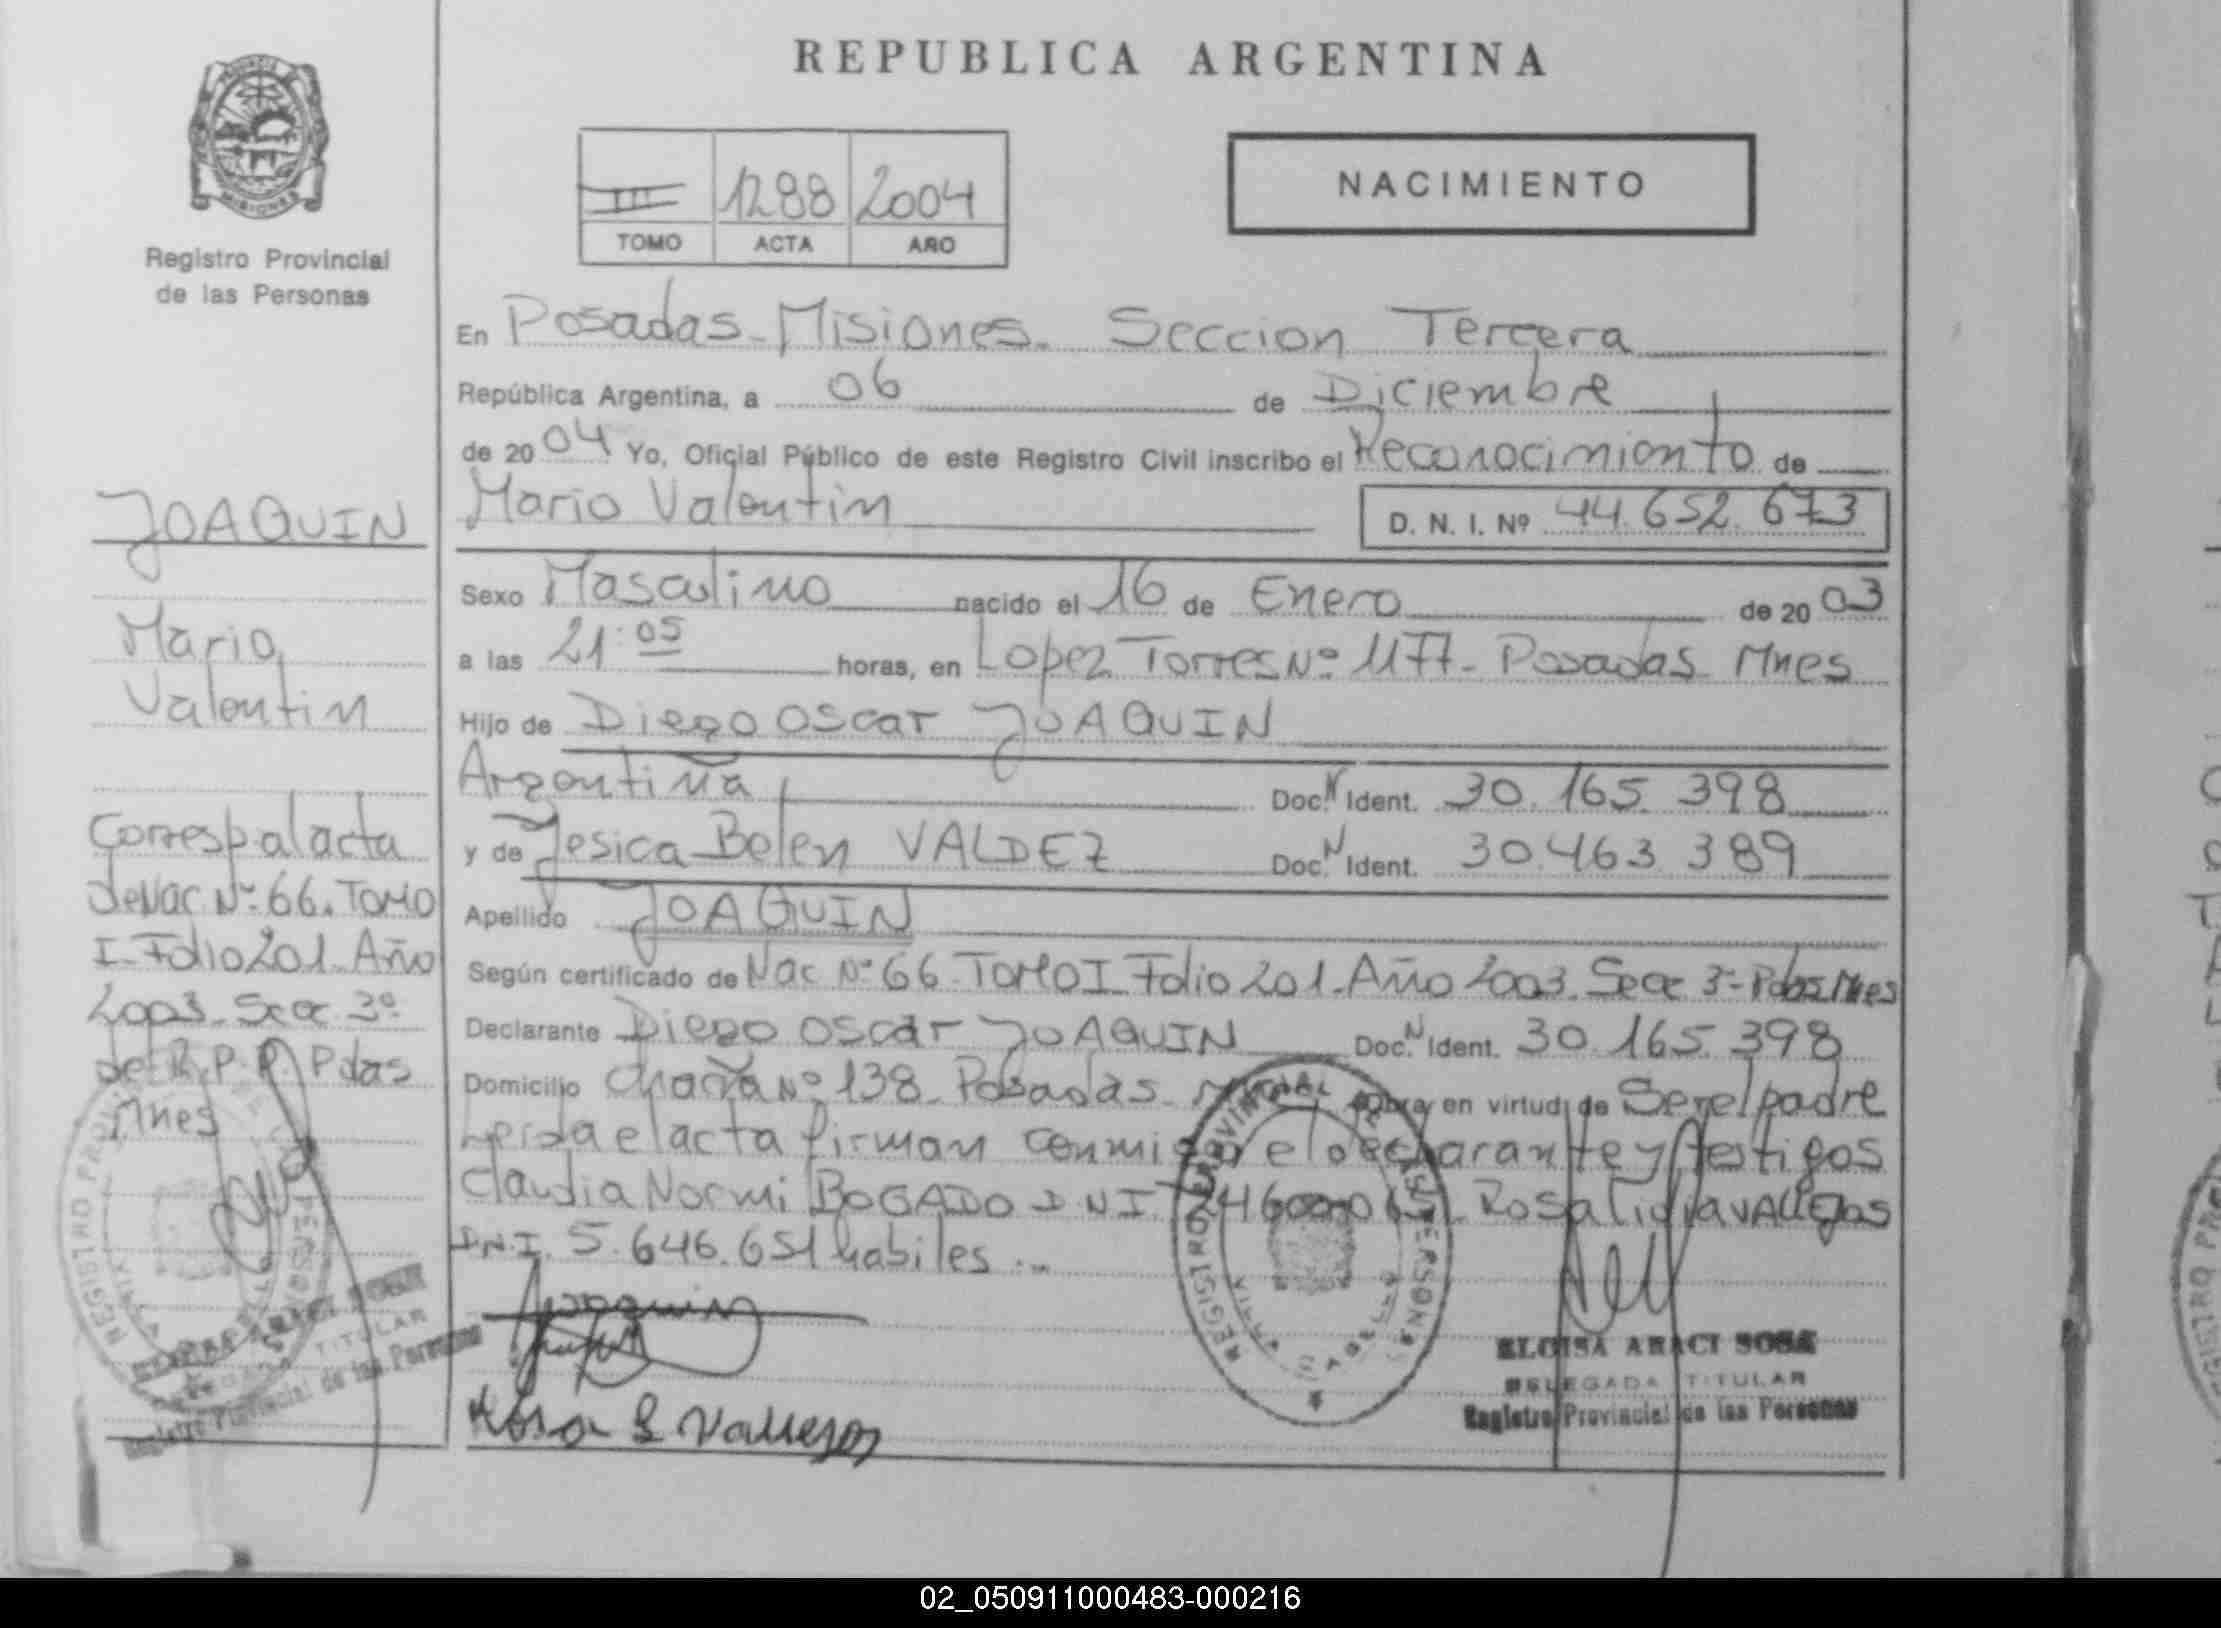 REPUBLICA ARGENTINA
III 1288 2004
TOMO ACTA AÑO
NACIMIENTO
PROVINCIA DE
MISIONES
Registro Provincial
de las Personas
JOAQUIN
Mario
Valentin
Corresp al acta
de Nac Nº 66. TOMO
I - Folio 201 - Año
2003 - Secc 3º
del R.P.P. Pdas
Mnes
En Posadas - Misiones - Seccion Tercera
República Argentina, a 06 de Diciembre
de 2004 Yo, Oficial Público de este Registro Civil inscribo el Reconocimiento de
Mario Valentin D. N. I. Nº 44.652.673
Sexo Masculino nacido el 16 de Enero de 2003
a las 21:05 horas, en Lopez Torres Nº 1177 - Posadas Mnes
Hijo de Diego Oscar JOAQUIN
Argentina Doc. N Ident. 30.165.398
y de Jesica Belen VALDEZ Doc. N Ident. 30.463.389
Apellido JOAQUIN
Según certificado de Nac Nº 66 - TOMO I - Folio 201 - Año 2003 - Secc 3º - Pdas Mnes
Declarante Diego Oscar JOAQUIN Doc. N Ident. 30.165.398
Domicilio Nº 138 - Posadas - obra en virtud de Ser el padre
Leida el acta firman conmigo el declarante y testigos
Claudia Normi BOGADO D.N.I. Rosa Lidia VALLEJOS
D.N.I. 5.646.651 habiles
Joaquin
Rosa L Vallejos
REGISTRO PROVINCIAL DE LAS PERSONAS
ELOISA ARACI SOSA
DELEGADA TITULAR
Registro Provincial de las Personas
02_050911000483-000216